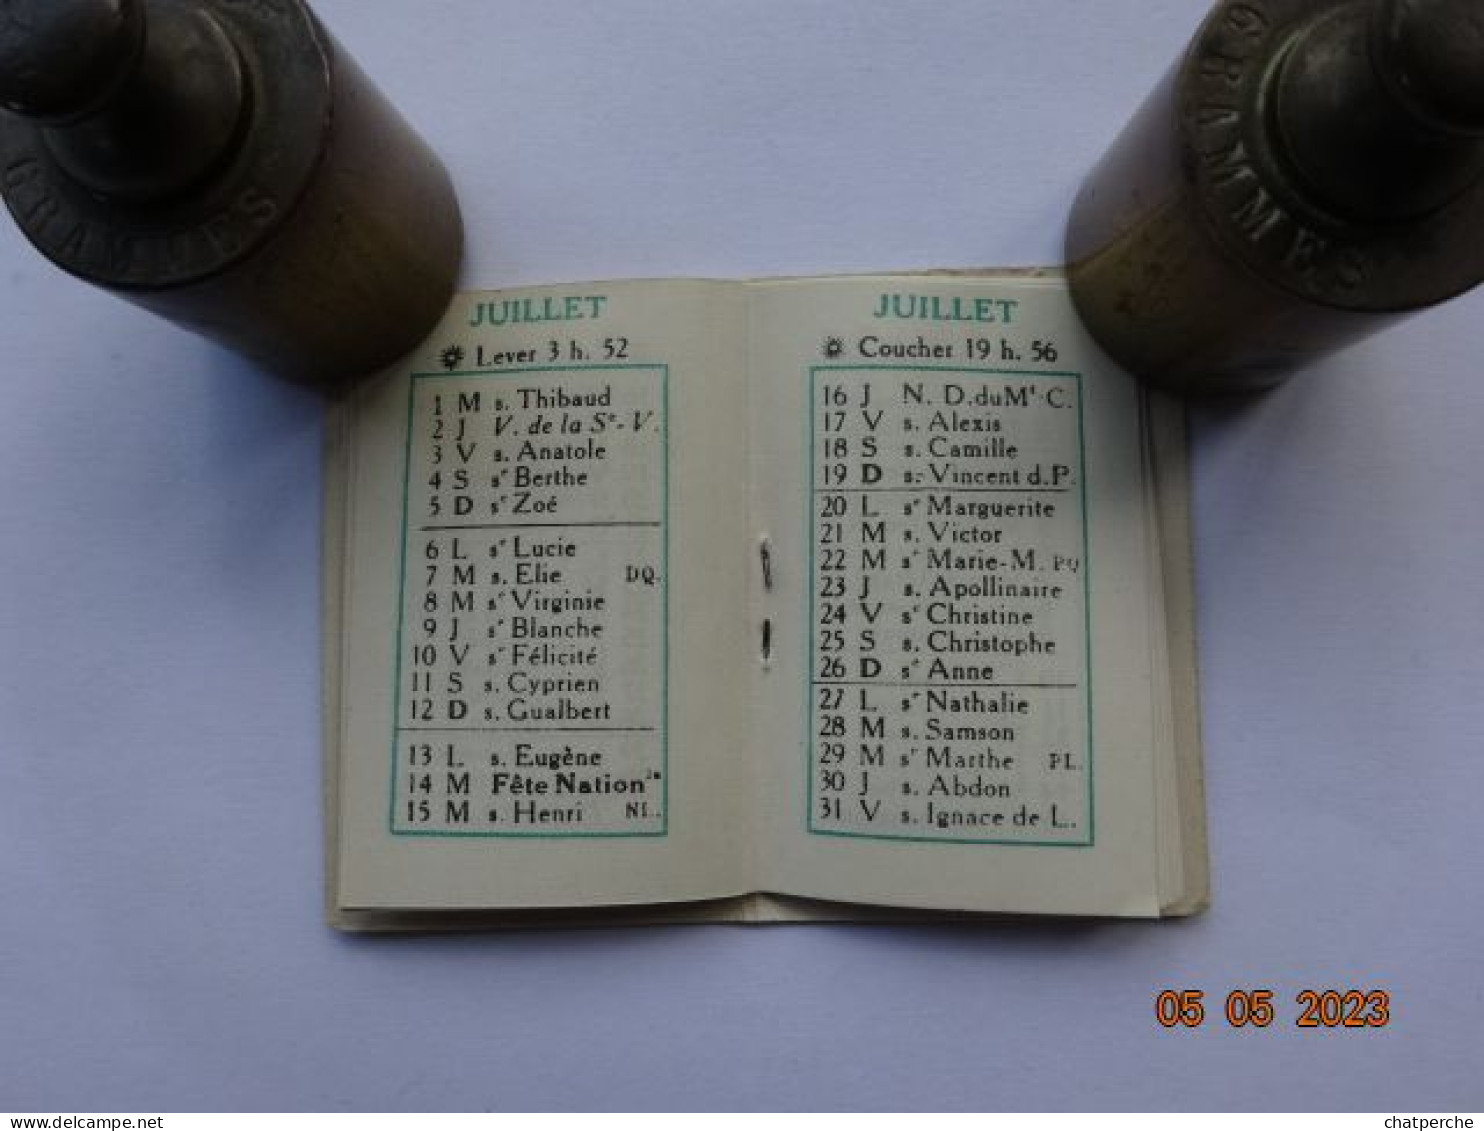 GRAMMES
GRAMMES
JUILLET
Lever 3 h. 52
1 M s. Thibaud
2 J V. de la Sᵉ-V.
3 V s. Anatole
4 S sᵉ Berthe
5 D sᵉ Zoé
6 L sᵉ Lucie
7 M s. Elie DQ.
8 M sᵉ Virginie
9 J sᵉ Blanche
10 V sᵉ Félicité
11 S s. Cyprien
12 D s. Gualbert
13 L s. Eugène
14 M Fête Nationˡᵉ
15 M s. Henri NL.
JUILLET
Coucher 19 h. 56
16 J N. D. du Mᵗ C.
17 V s. Alexis
18 S s. Camille
19 D s. Vincent d. P.
20 L sᵉ Marguerite
21 M s. Victor
22 M sᵉ Marie-M. PQ
23 J s. Apollinaire
24 V sᵉ Christine
25 S s. Christophe
26 D sᵉ Anne
27 L sᵉ Nathalie
28 M s. Samson
29 M sᵉ Marthe PL.
30 J s. Abdon
31 V s. Ignace de L.
05 05 2023
www.delcampe.net
chatperche